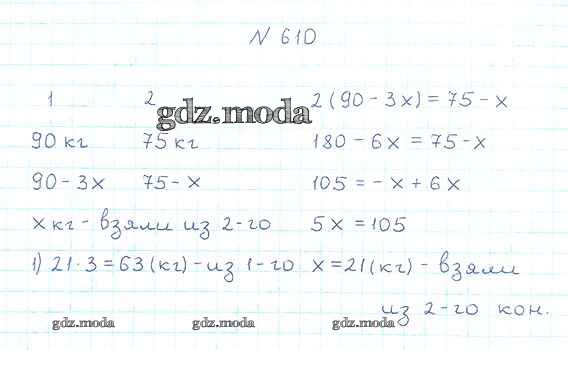 № 610
1 2 2(90 - 3x) = 75 - x
gdz.moda
90 кг 75 кг 180 - 6x = 75 - x
90 - 3x 75 - x 105 = - x + 6x
x кг - взяли из 2-го 5x = 105
1) 21 · 3 = 63 (кг) - из 1-го x = 21 (кг) - взяли
из 2-го кон.
gdz.moda gdz.moda gdz.moda